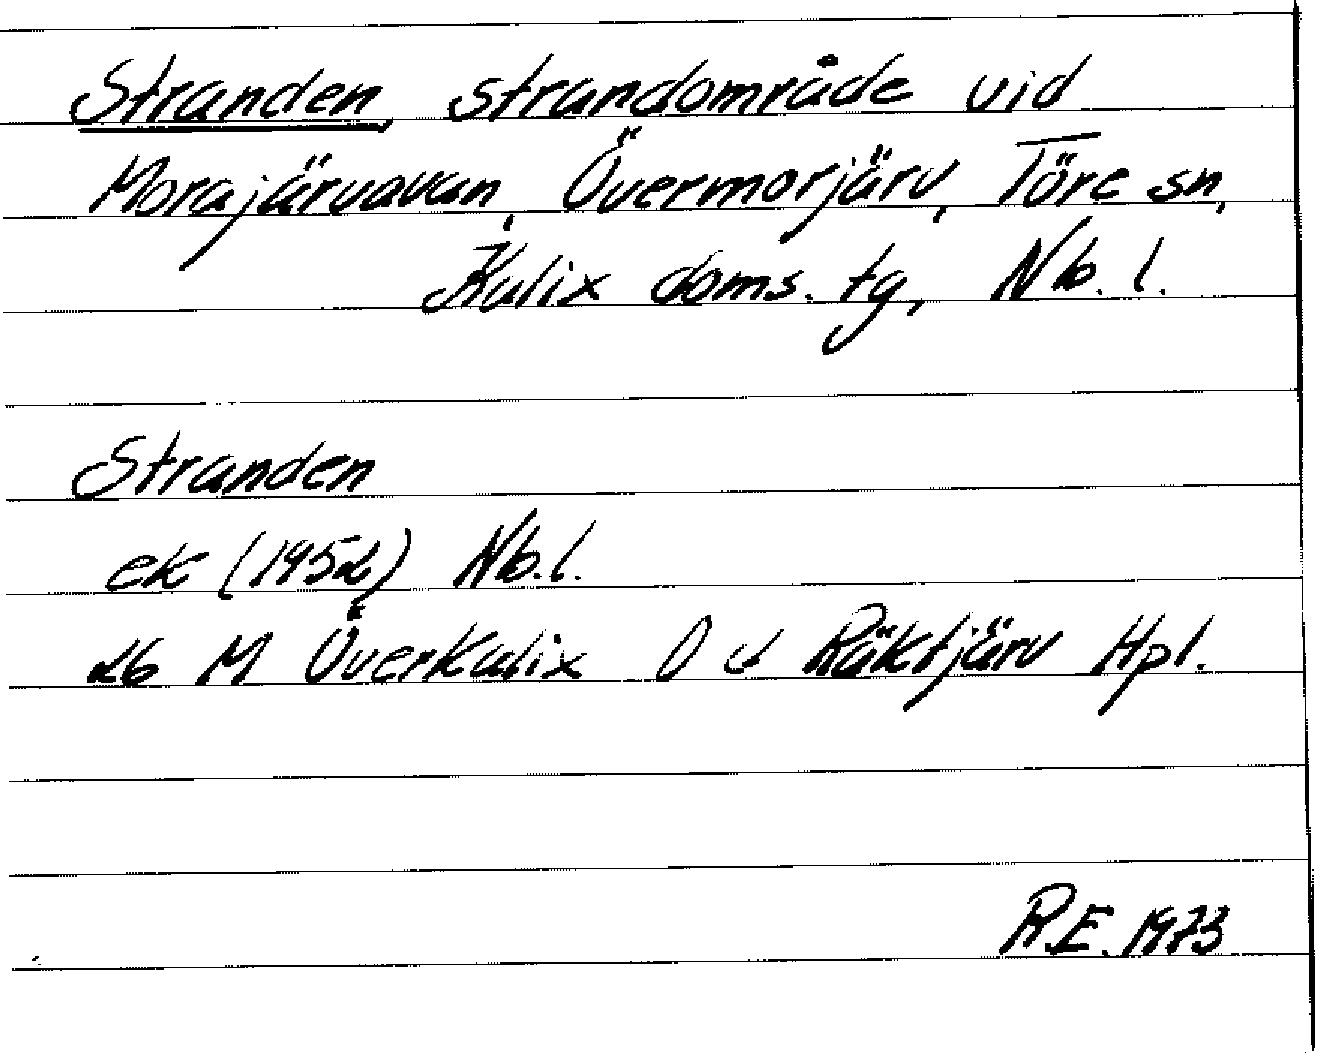 Stranden, strandområde vid
Morajärvavan, Övermorjärv, Töre sn,
Kalix doms. tg, Nb. l.
Stranden
ek (1952) Nb.l.
26 M Överkalix O d Räktjärv Hpl.
R.E. 1973